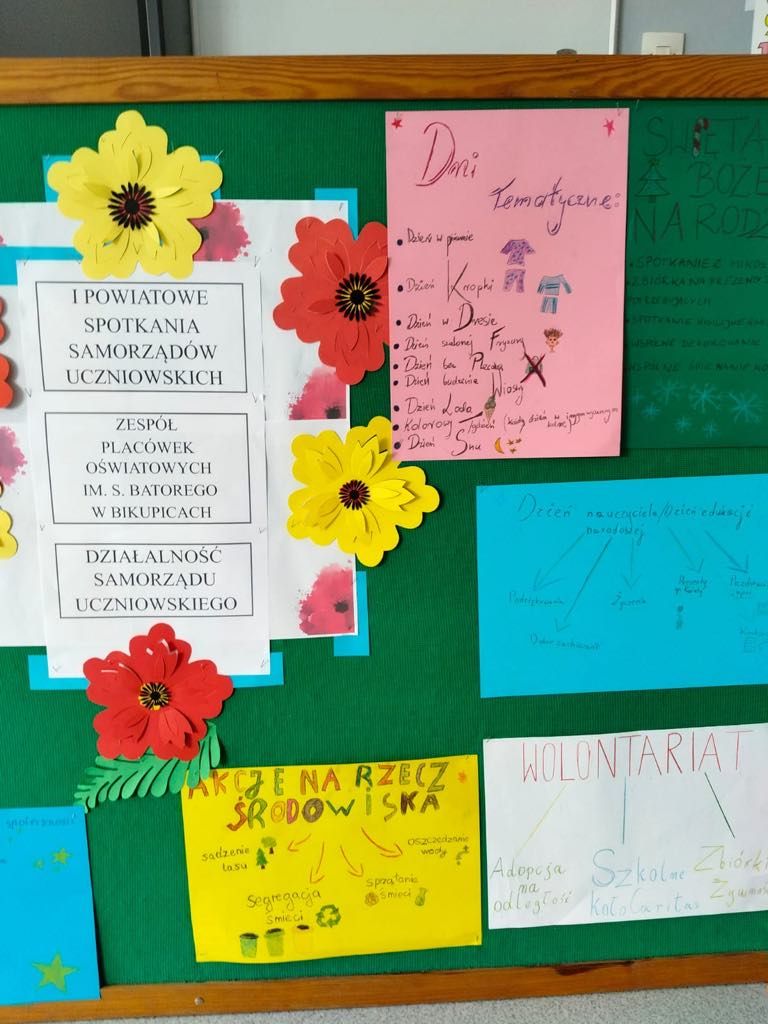 I POWIATOWE
SPOTKANIA
SAMORZĄDÓW
UCZNIOWSKICH
ZESPÓŁ
PLACÓWEK
OŚWIATOWYCH
IM. S. BATOREGO
W BIKUPICACH
DZIAŁALNOŚĆ
SAMORZĄDU
UCZNIOWSKIEGO
Dni
Tematyczne:
Dzień w piżamie
Dzień Kropki
Dzień w Dresie
Dzień szalonej Fryzury
Dzień bez Plecaka
Dzień budzenia Wiosny
Dzień Loda
Kolorowy Tydzień (każdy dzień w innym kolorze)
Dzień Snu
ŚWIĘTA
BOŻE
NARODZ
SPOTKANIE Z MIKO
ZBIÓRKA NA PREZENTY
SPOTKANIE WIGILIJNE
WSPÓLNE DEKOROWANIE
WSPÓLNE ŚPIEWANIE KO
Dzień nauczyciela/Dzień edukacji
narodowej
Podziękowania
Życzenia
Prezenty
i kwiaty
Dobre zachowanie
WOLONTARIAT
Adopcja
na
odległość
Szkolne
Koło Caritas
Zbiórki
Żywnoś
AKCJE NA RZECZ
ŚRODOWISKA
sadzenie
lasu
Segregacja
śmieci
sprzątanie
śmieci
oszczędzanie
wody
społeczności